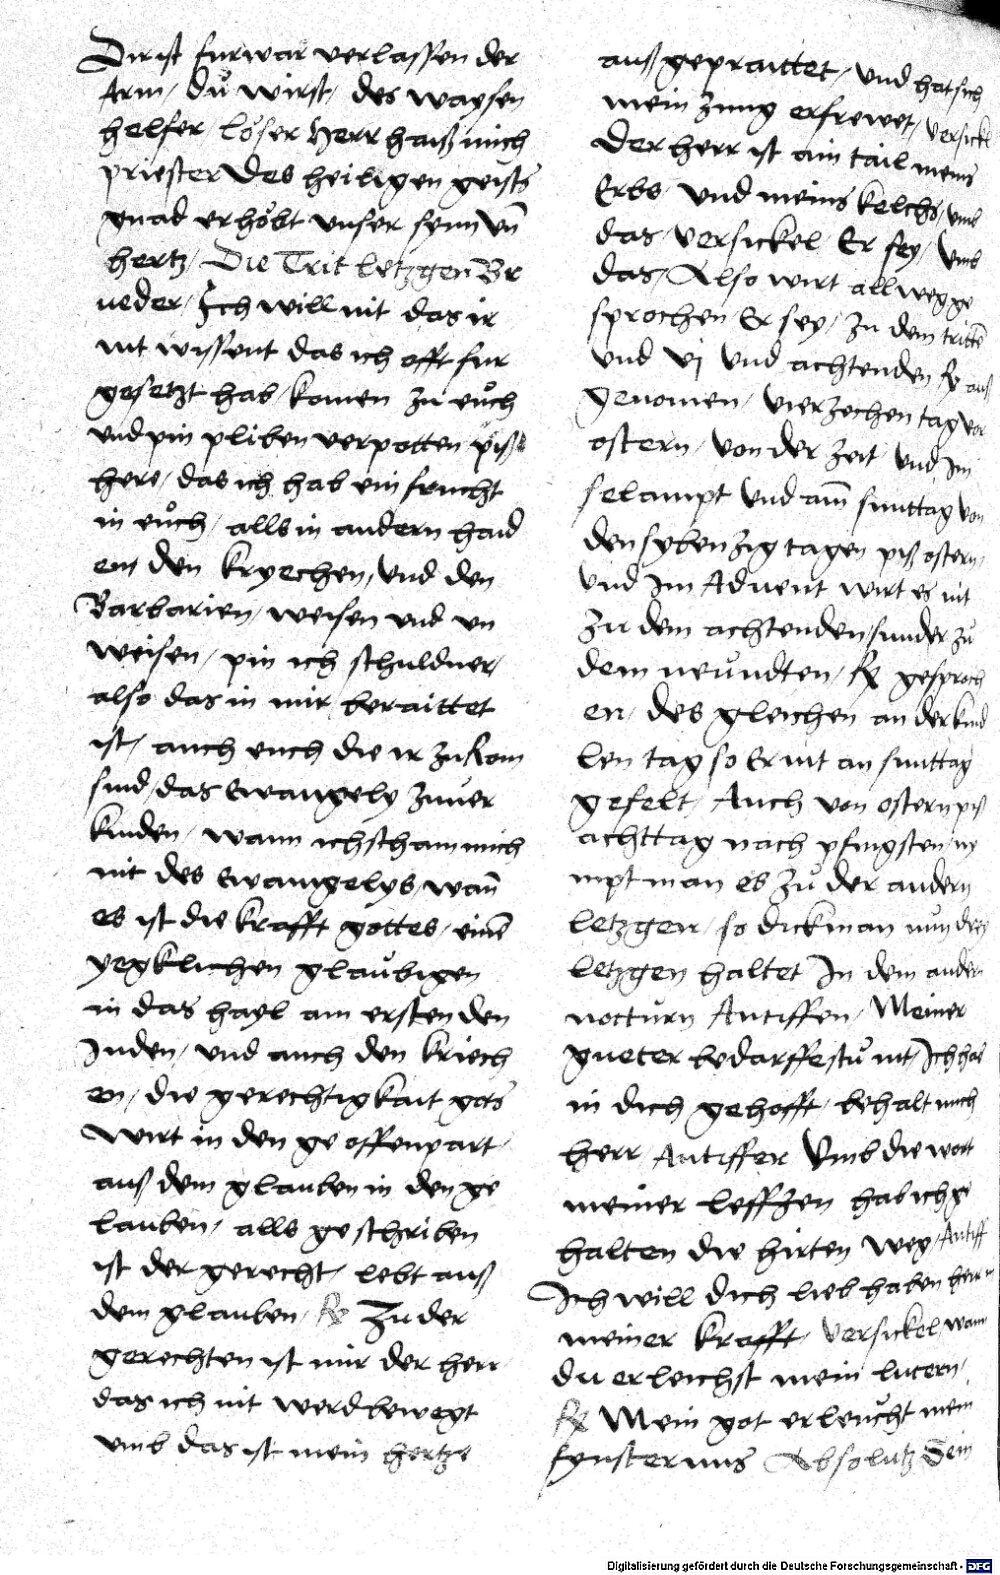 Dir ist furwar verlassen der
Arm / du wirst / des waysen
helfer / loser Herr haiß mich
priester Des heiligen geists
gnad erhöbt unser synn vñ
hertz / Die Trit letzgen Br
ueder / Ich will nit das ir
nit wissent das ich offt fur
gesetzt hab / komen zu euch
und pin pliben verpotten piß
here / das ich hab ein frucht
in euch / alls in andern haid
en / den kryechen / und den
Barbarien / weisen und un
weisen / pin ich schuldner /
also das in mir beraittet
ist / auch euch die ir zu Rom
sind / das Ewangely zuuer
kinden / wann ich scham mich
nit des Ewangelys / wañ
es ist die krafft gottes / einē
yegklichen glaubigen
in das hayl am ersten den
Juden / und auch den kriech
en / die gerechtigkait gots
wirt in den geoffenpart /
auß dem glauben in den ge
lauben / alls geschriben
ist der gerecht / lebt auß
dem glauben / ℟ Zu der
gerechten ist mir der herr
das ich nit werd bewegt
umb das ist mein hertze
auß gepraittet / und hat sich
mein zung erfrewet / versickel
Der herr ist ain tail meins
Erbs und meins kelchs / umb
das / versickel Er sey / umb
das / Also wirt allweg ge
sprochen / Er sey / zu dem tritten
und vj und achtenden ℟ auß
genomen / vierzechen tag vor
ostern / von der zeit und Im
selampt und am̄ sunttag von
den sybenzig tagen piß ostern /
und Im Advent wirt es nit
zu dem achtenden / sunder zu
dem neundten / ℟ gesproch
en / des gleichen an der kind
len tag so Er nit an sunttag
gefelt / Auch von ostern piß
achttag nach pfingsten / ny
mpt man es zu der andern
letzgen / so dick man nun drey
letzgen haltet In dem andern
notturn Antiffen / Meiner
gueter bedarffestu nit / Ich hab
in dich gehofft / behalt mich
herr Antiffen Umb die wort
meiner leffzen hab ich ge
halten die hirten weg / Antiff
Ich will dich lieb haben herr in
meiner krafft / versickel / wann
du erleichst mein lucern /
℟ Mein got erleucht mein
fynsternus Absolutz Dein